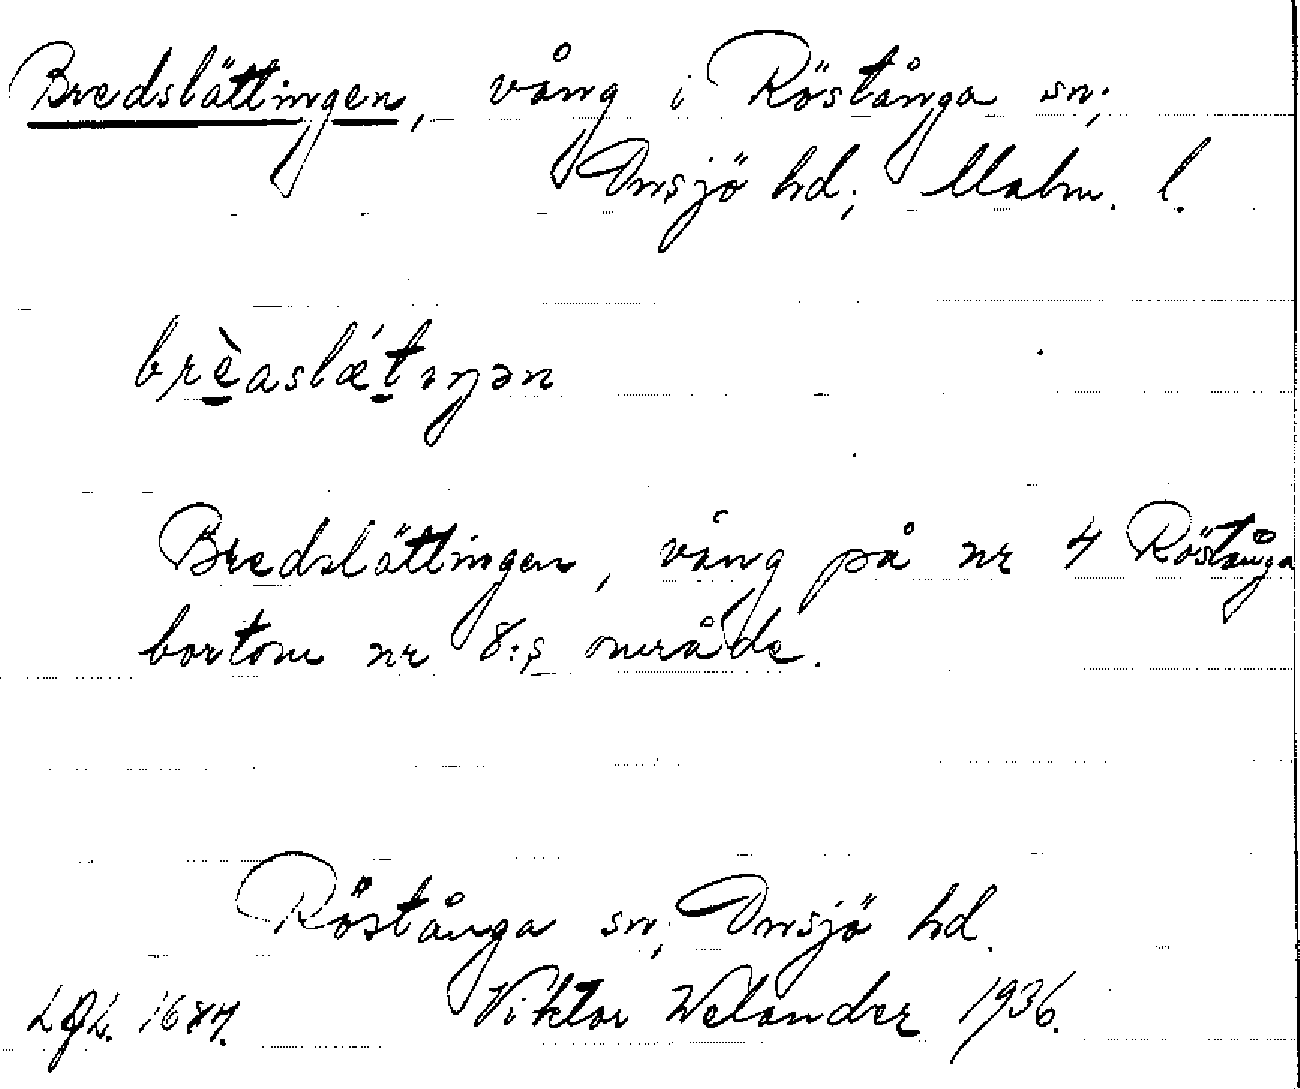 Bredslättingen, vång i Röstånga sn;
Onsjö hd; Malm. l.
brèaslǽtıŋən
Bredslättingen, vång på nr 4 Röstånga
bortom nr 8:s område.
Röstånga sn; Onsjö hd.
Viktor Welander 1936.